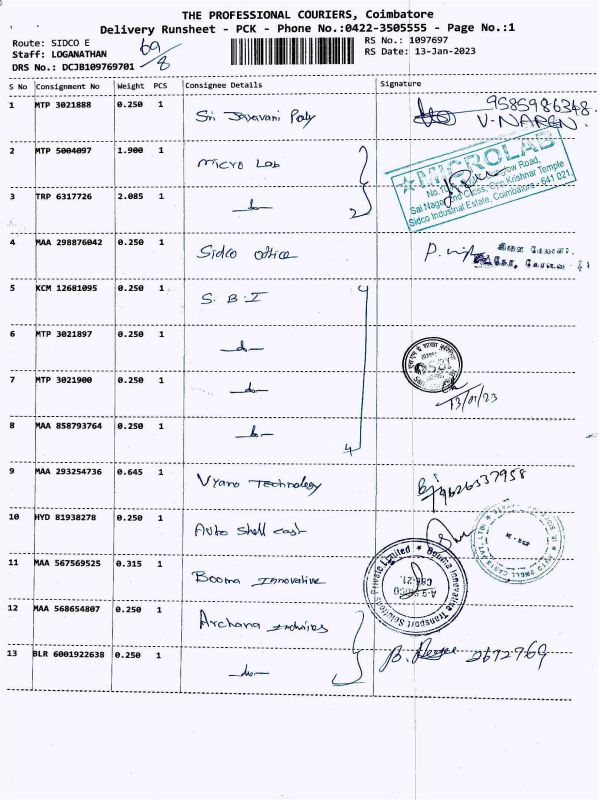 THE PROFESSIONAL COURIERS, Coimbatore
Delivery Runsheet - PCK - Phone No.:0422-3505555 - Page No.:1
Route: SIDCO E
Staff: LOGANATHAN
DRS No.: DCJB109769701
69/8
RS No.: 1097697
RS Date: 13-Jan-2023
S No Consignment No Weight PCS Consignee Details Signature
1 MTP 3021888 0.250 1 Sri Jayavani Poly 9585986368
V. NAREN.
2 MTP 5004097 1.900 1 Micro Lab
MICROLAB
Sai Nagar 2nd Cross, Opp. Krishnar Temple
Sidco Industrial Estate, Coimbatore - 641 021.
3 TRP 6317726 2.085 1 -do- 2
4 MAA 298876042 0.250 1 Sidco Office
5 KCM 12681095 0.250 1 S.B.I
6 MTP 3021897 0.250 1 -do-
7 MTP 3021900 0.250 1 -do- 13/01/23
8 MAA 858793764 0.250 1 -do- 4
9 MAA 293254736 0.645 1 Vyano Technology 9626337958
10 HYD 81938278 0.250 1 Auto Shell cast
11 MAA 567569525 0.315 1 Booma Innovative
Booma Innovative Transport Solutions Private Limited
12 MAA 568654807 0.250 1 Archana
13 BLR 6001922638 0.250 1 -do- 2672769